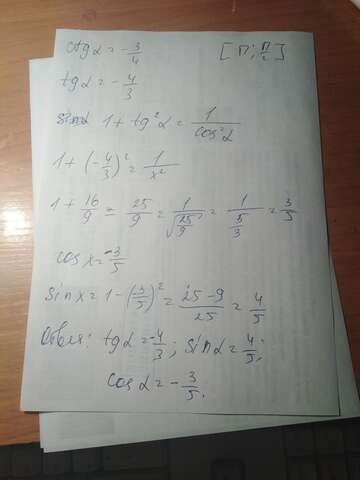 ctgα = -3/4 [π; π/2]
tgα = -4/3
sinα 1 + tg²α = 1/cos²α
1 + (-4/3)² = 1/x²
1 + 16/9 = 25/9 = 1/√(25/9) = 1/(5/3) = 3/5
cos x = -3/5
sin x = 1 - (3/5)² = (25-9)/25 = 4/5
Ответ: tgα = -4/3; sinα = 4/5;
cosα = -3/5.